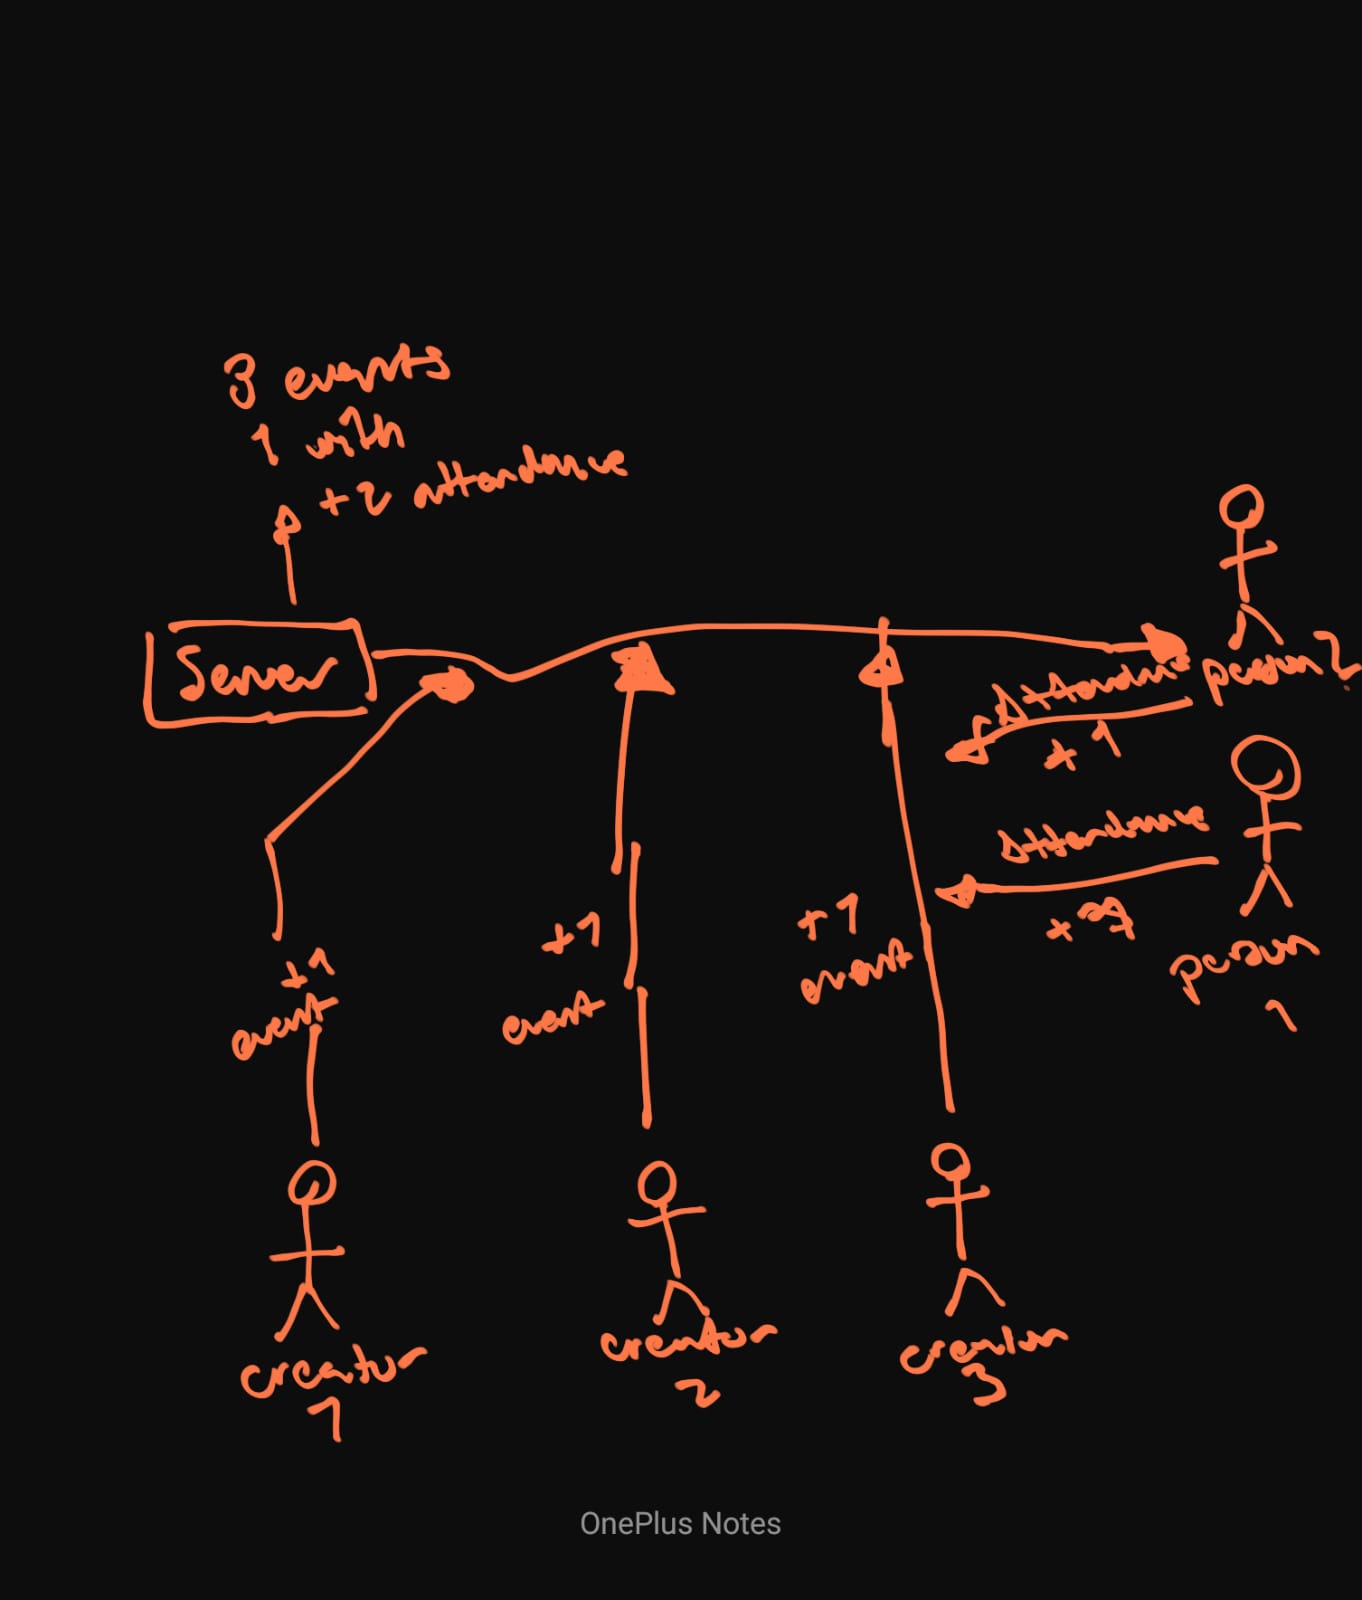 3 events
1 with
+2 attendance
Server
person 2
Attendance
+1
Attendance
+1
person
1
+1
event
+1
event
+1
event
creator
1
creator
2
creator
3
OnePlus Notes